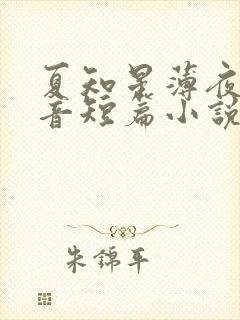 夏知景薄夜
音短篇小說
朱錦平